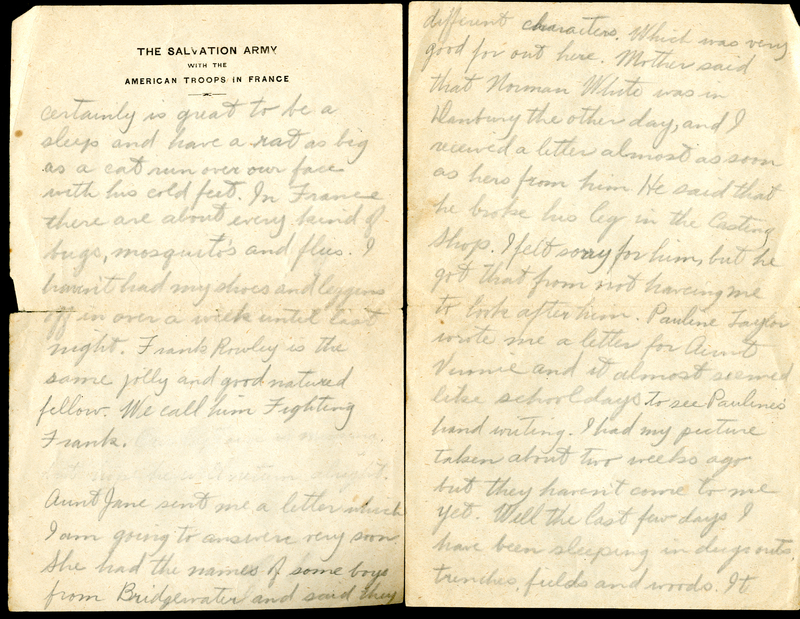 THE SALVATION ARMY
WITH THE
AMERICAN TROOPS IN FRANCE
certainly is great to be a
sleep and have a rat as big
as a cat run over our face
with his cold feet. In France
there are about every kind of
bugs, mosquito's and flies. I
haven't had my shoes and leggins
off in over a week until last
night. Frank Rowley is the
same jolly and good natured
fellow. We call him Fighting
Frank.
Aunt Jane sent me a letter which
I am going to answere very soon
She had the names of some boys
from Bridgewater and said they
different characters. Which was very
good for out here. Mother said
that Norman White was in
Danbury the other day, and I
received a letter almost as soon
as hers from him He said that
he broke his leg in the Casting
Shop. I felt sorry for him, but he
got that from not haveing me
to look after him. Pauline Taylor
wrote me a letter for Aunt
Vinnie and it almost seemed
like school days to see Pauline's
hand writing. I had my picture
taken about two weeks ago
but they haven't come to me
yet. Well the last few days I
have been sleeping in dugouts,
trenches, fields and woods. It